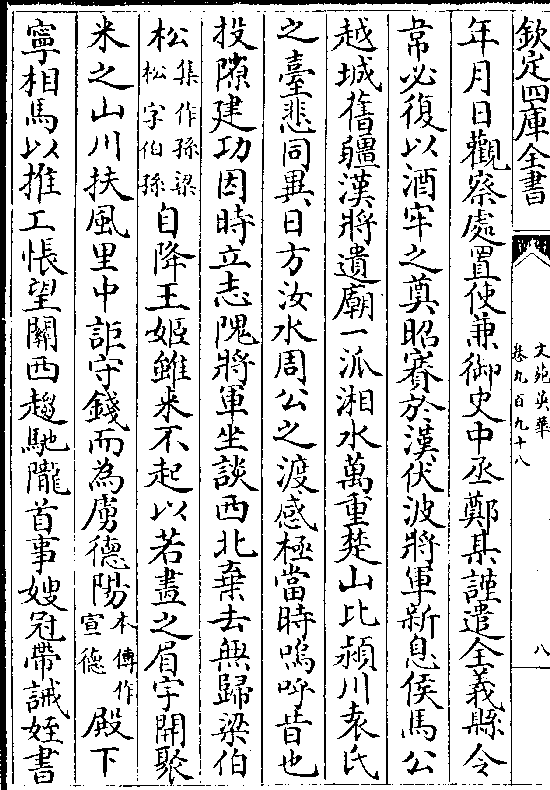 欽定四庫全書
文苑英華
卷九百九十八
八
年月日觀察處置使兼御史中丞鄭某謹遣全義縣令
常必復以酒牢之奠昭賽於漢伏波將軍新息侯馬公
越城舊疆漢將遺廟一派湘水萬重楚山比潁川袁氏
之臺悲同異日方汝水周公之渡感極當時嗚呼昔也
投隙建功因時立志隗將軍坐談西北棄去無歸梁伯
松集作孫梁松字伯孫自降王姬雖來不起以若畫之眉宇開聚
米之山川扶風里中詎守錢而為虜德陽本傳作宣德殿下
寧相馬以推工悵望關西趨馳隴首事嫂冠帶誡姪書